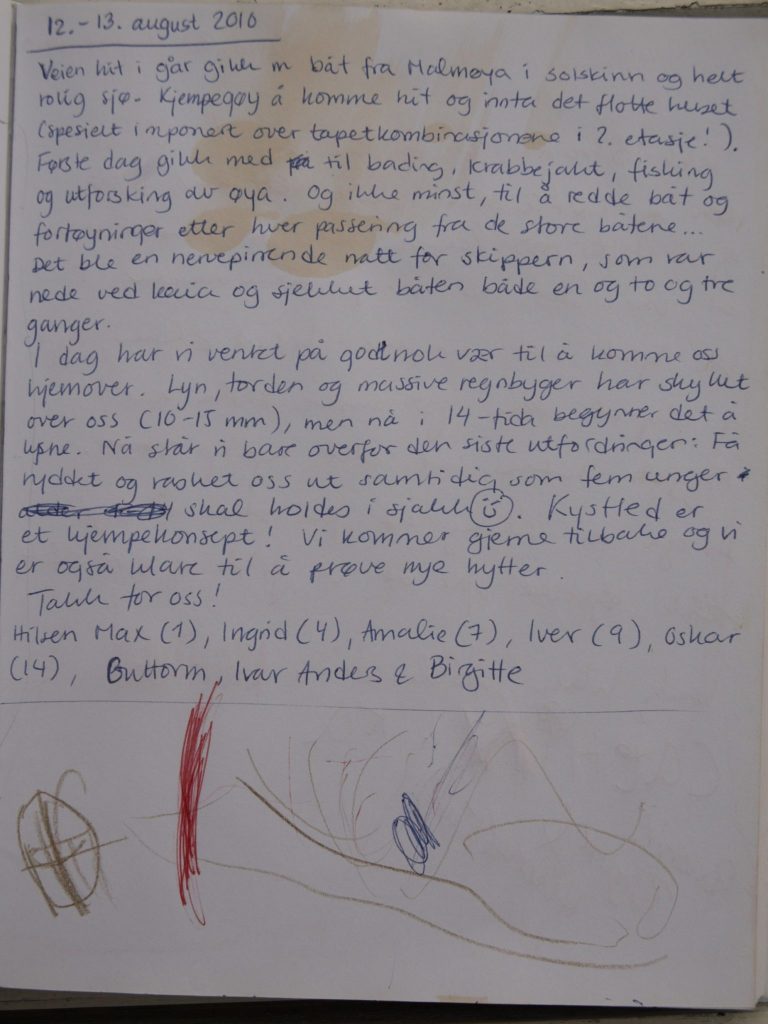 12.-13. august 2010
Veien hit i går gikk m båt fra Malmøya i solskinn og helt
rolig sjø. Kjempegøy å komme hit og innta det flotte huset
(spesielt imponert over tapetkombinasjonene i 2. etasje!).
Første dag gikk med til bading, krabbejakt, fisking
og utforsking av øya. Og ikke minst, til å redde båt og
fortøyninger etter hver passering fra de store båtene...
Det ble en nervepirrende natt for skippern, som var
nede ved kaia og sjekket båten både en og to og tre
ganger.
I dag har vi ventet på godt nok vær til å komme oss
hjemover. Lyn, torden og massive regnbyger har skyllet
over oss (10-15 mm), men nå i 14-tida begynner det å
lysne. Nå står vi bare overfor den siste utfordringen: Få
ryddet og vasket oss ut samtidig som fem unger
skal holdes i sjakk. Kystled er
et kjempekonsept! Vi kommer gjerne tilbake og vi
er også klare til å prøve nye hytter.
Takk for oss!
Hilsen Max (1), Ingrid (4), Amalie (7), Iver (9), Oskar
(14), Guttorm, Ivar Anders & Birgitte